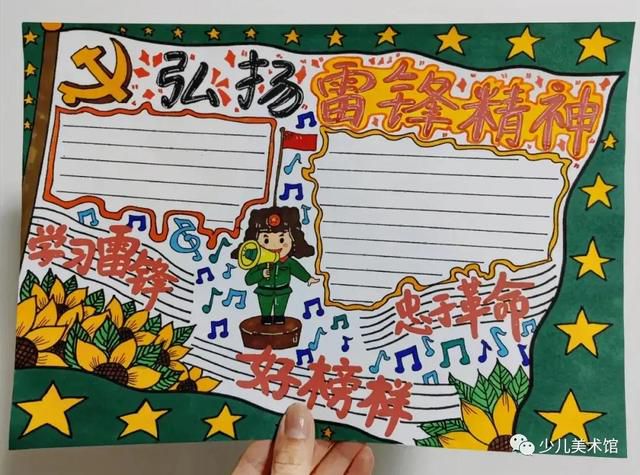 弘扬雷锋精神
学习雷锋
忠于革命
好榜样
少儿美术馆